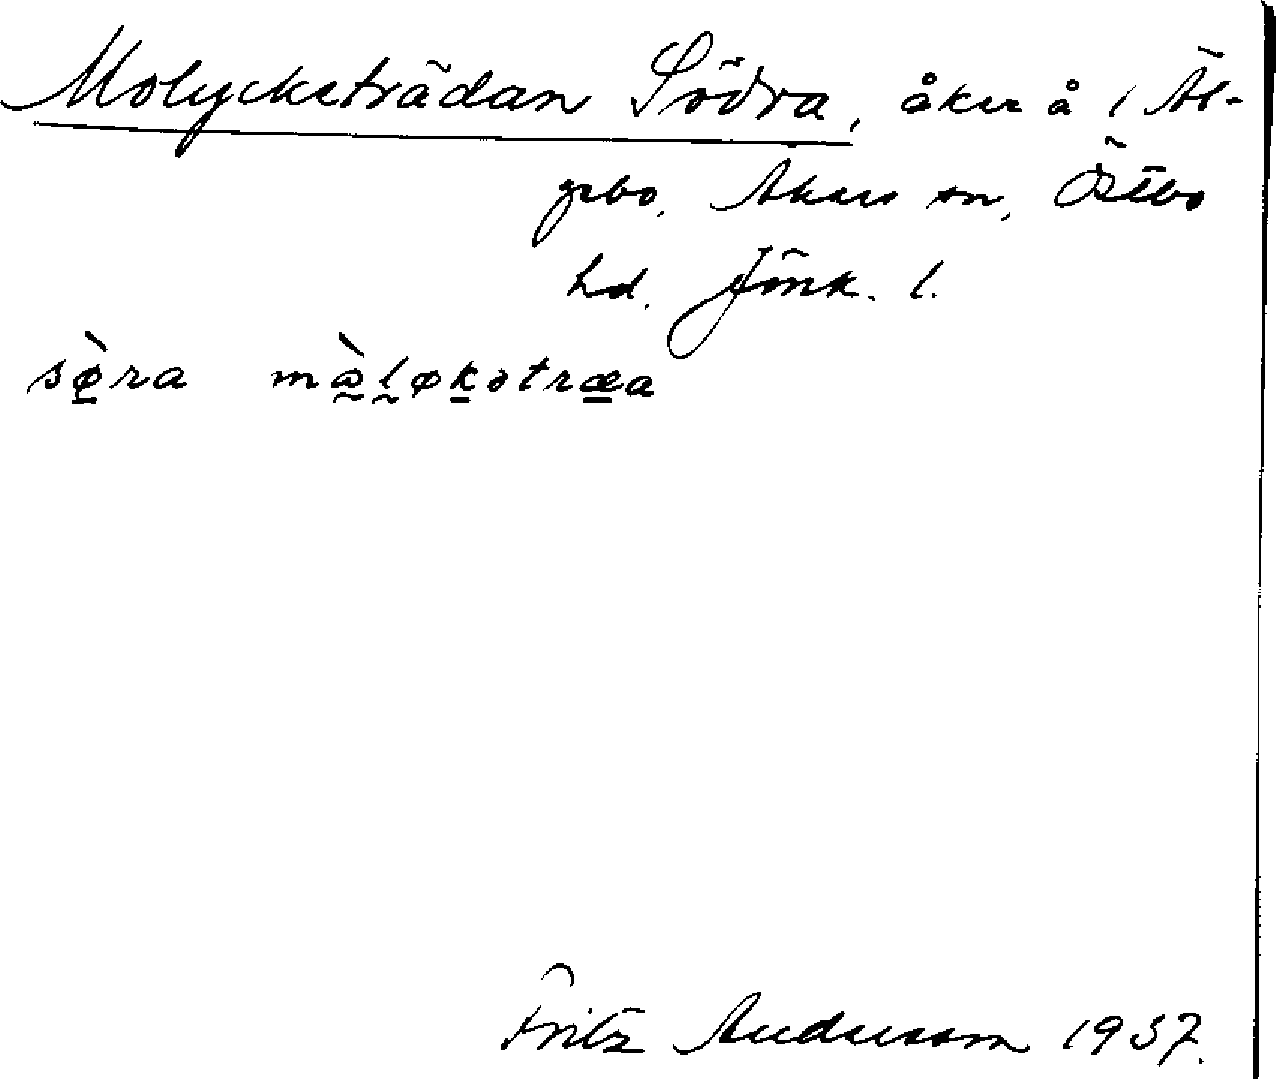 Molycketrädan Södra, åker å 1 Äl-
gebo, Åkers sn, Östbo
hd. Jönk. l.
sø̀ra mὼløkətræa
Fritz Andersson 1937.